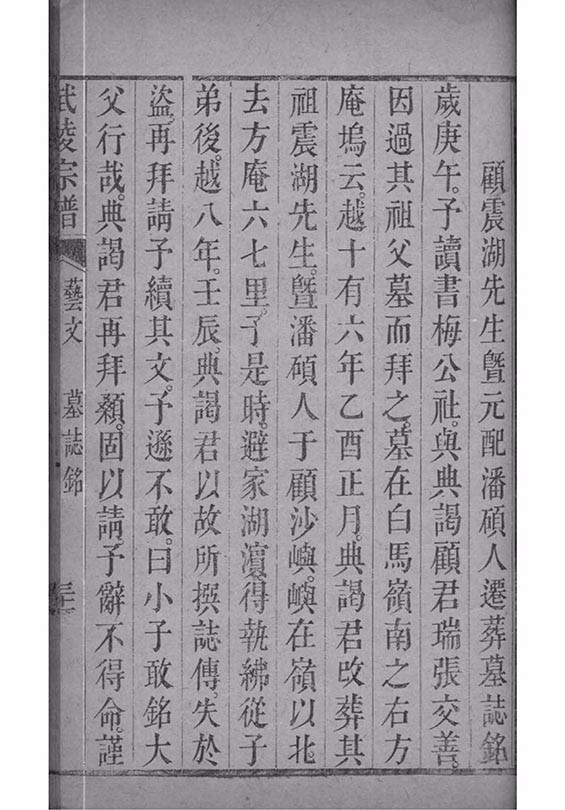 顧震湖先生曁元配潘碩人遷葬墓誌銘
歲庚午。予讀書梅公社。與典謁顧君瑞張交善。
因過其祖父墓而拜之。墓在白馬嶺南之右方
庵塢云。越十有六年乙酉正月。典謁君改葬其
祖震湖先生。曁潘碩人于顧沙嶼。嶼在嶺以北。
去方庵六七里。予是時。避家湖濵。得執紼從子
弟後。越八年。壬辰。典謁君以故所撰誌傳。失於
盜。再拜請予續其文。予遜不敢。曰小子敢銘大
父行哉。典謁君再拜顙。固以請。予辭不得命。謹
武陵宗譜 藝文 墓誌銘